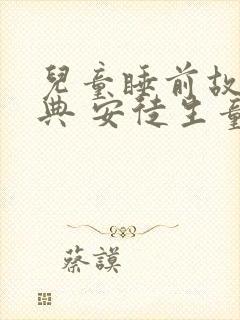 兒童睡前故
典 安徒生童
蔡謨